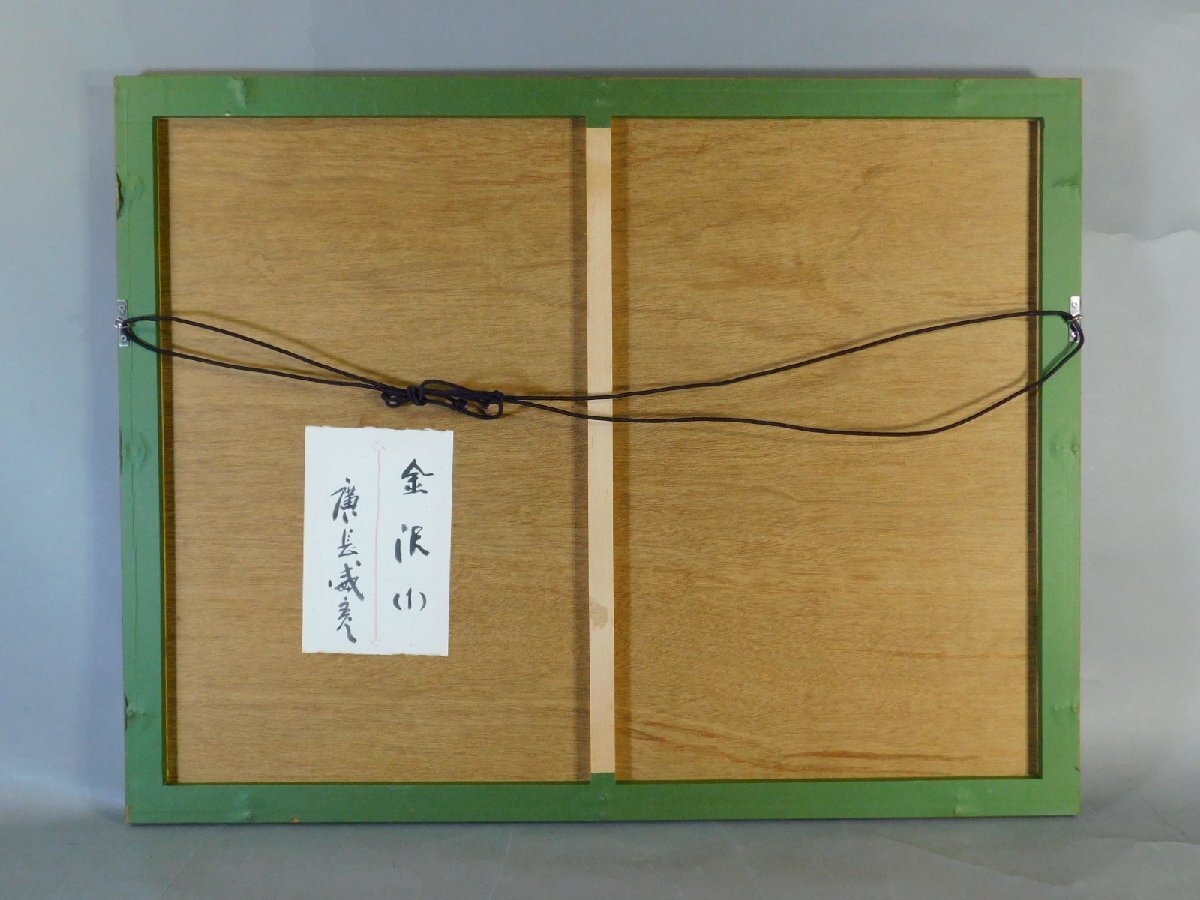 金沢(1)
廣長威彦